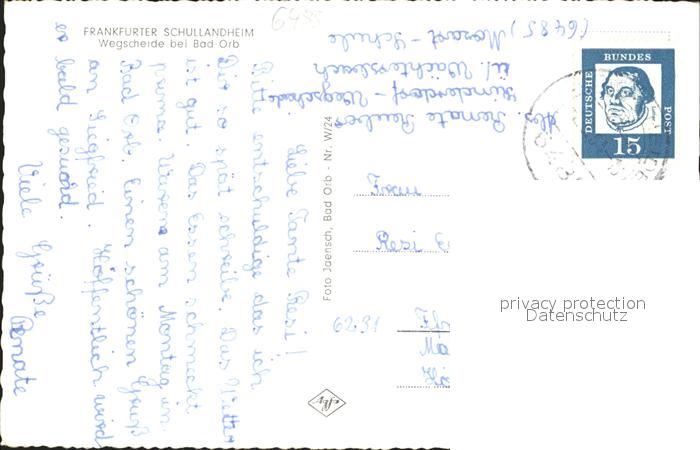 FRANKFURTER SCHULLANDHEIM
Wegscheide bei Bad Orb
Liebe Tante Resi!
Bitte entschuldige das ich
Dir so spät schreibe. Das Wetter
ist gut. Das Essen schmeckt
prima. Waren am Montag in
Bad Orb. Einen schönen Gruß
an Siegfried. Hoffentlich wird
er bald gesund.
Viele Grüße
Renate
Foto Jaensch, Bad Orb - Nr. W/24
Agfa
Abs. Renate
Wegscheide
ü/ Wächtersbach
(6485) Mozart-Schule
DEUTSCHE BUNDES POST
15
Frau
Resi
6231
privacy protection
Datenschutz